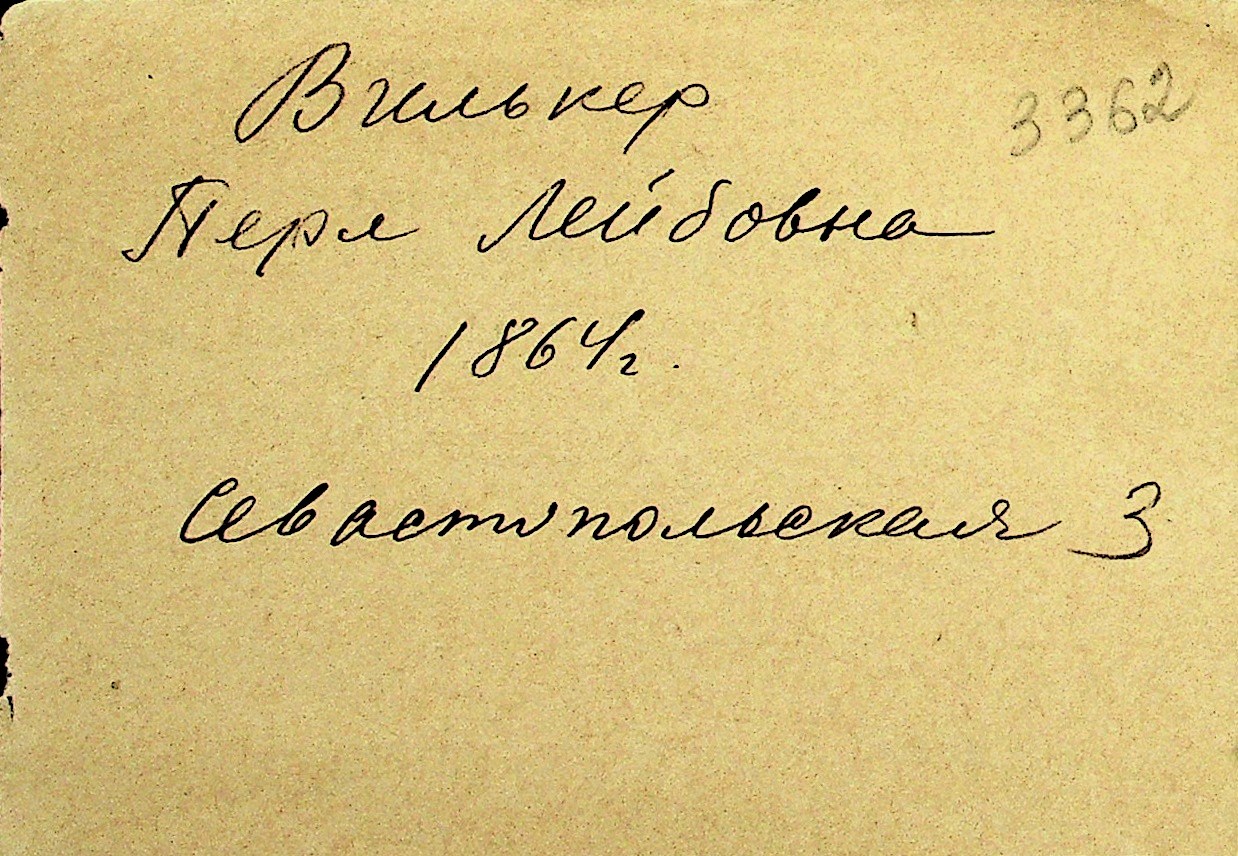 Вилькер
3362
Перл Лейбовна
1864г.
Севастопольская 3